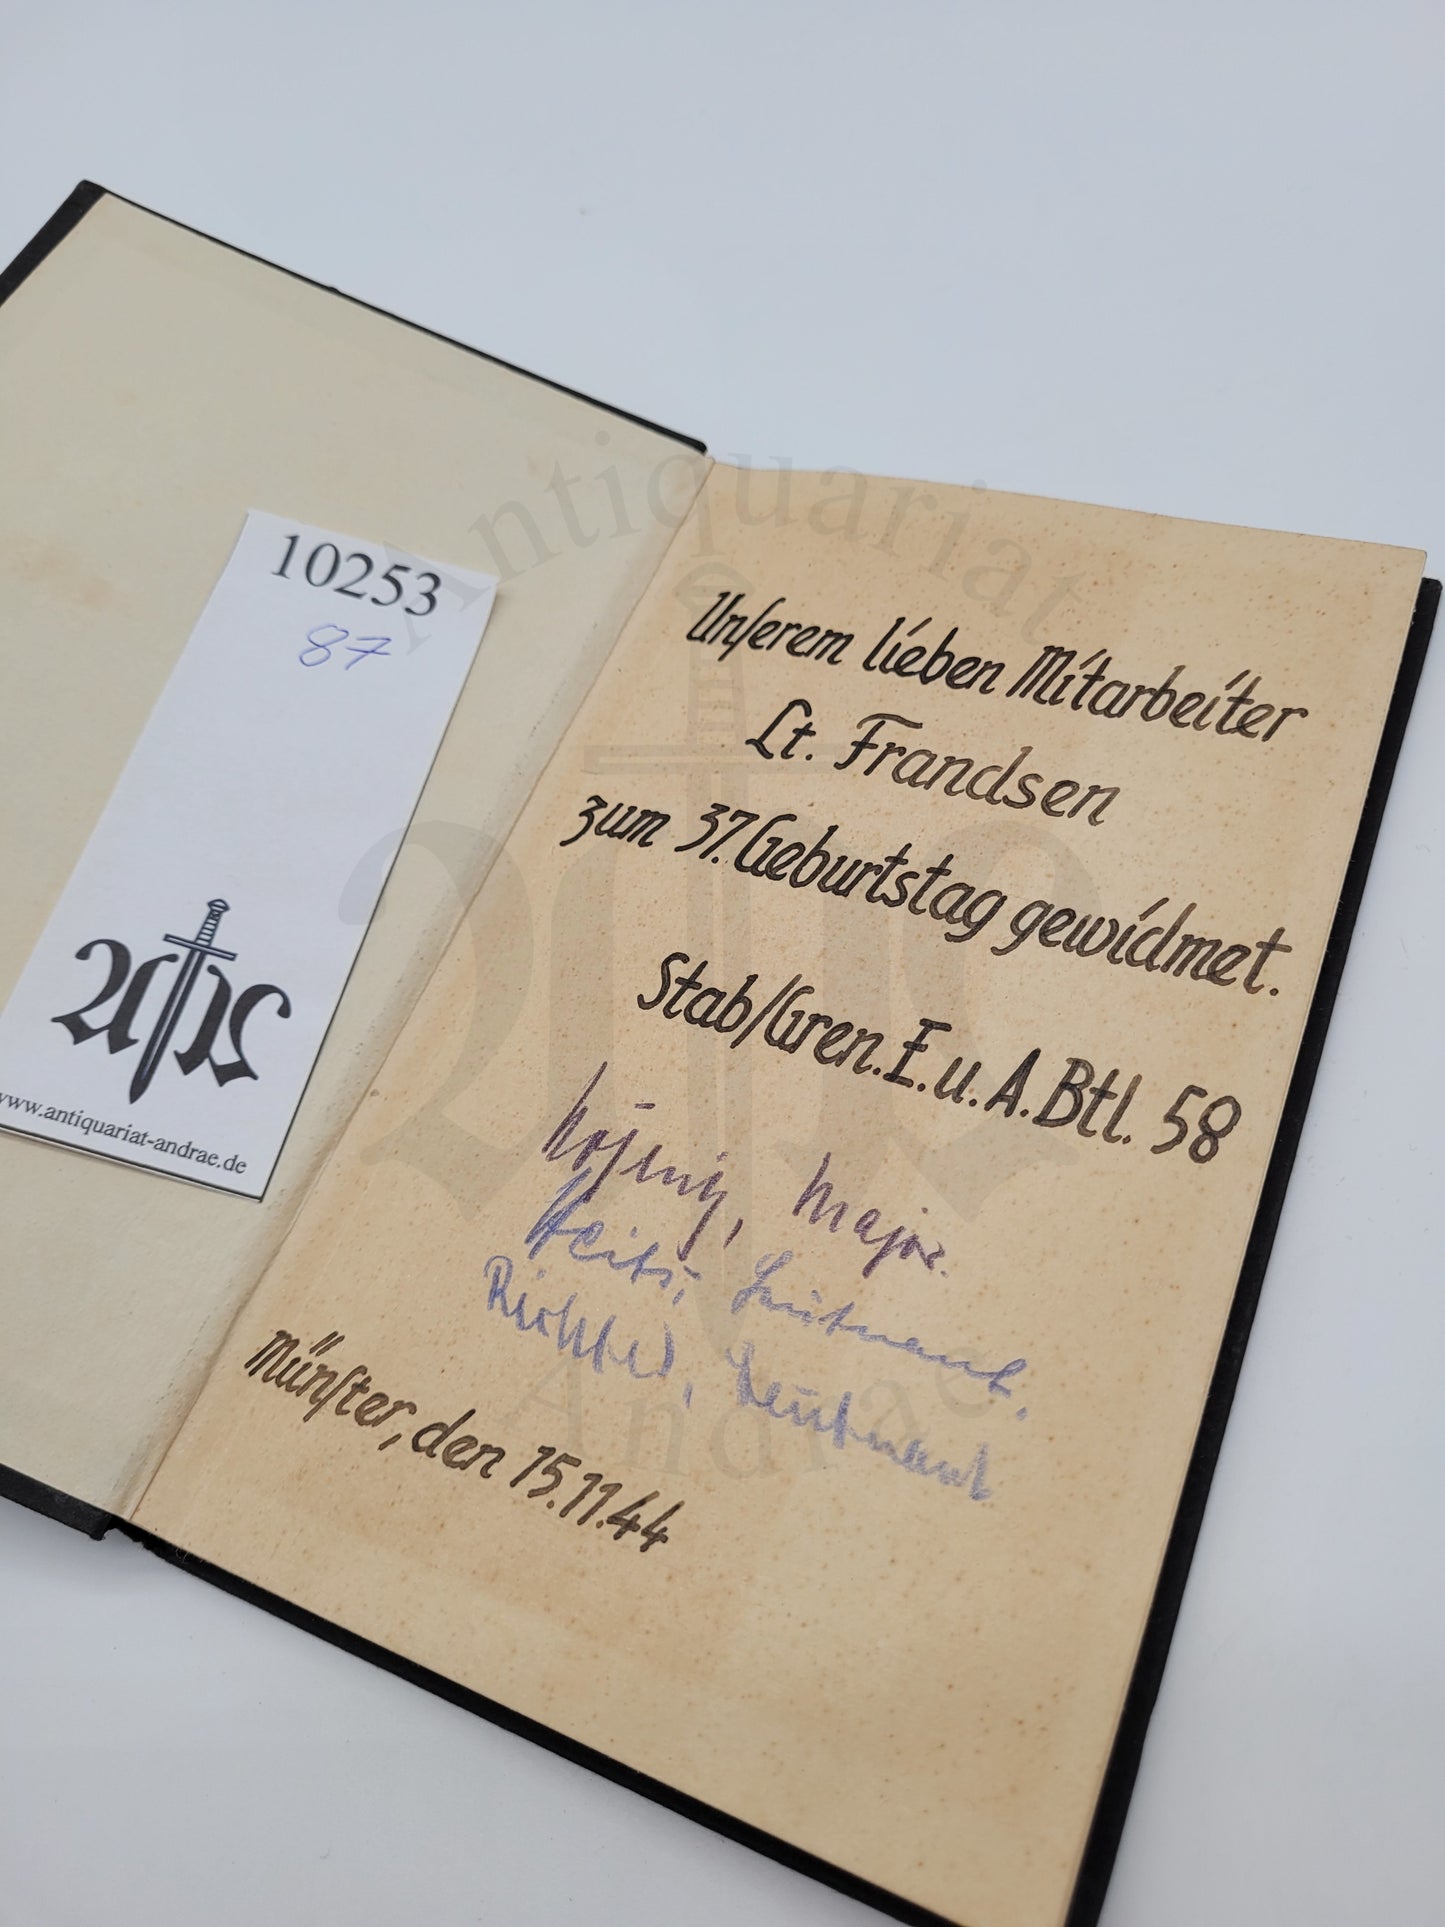 10253
87
www.antiquariat-andrae.de
Unſerem lieben Mitarbeiter
Lt. Frandsen
zum 37. Geburtstag gewidmet.
Stab/Gren.E.u.A.Btl. 58
Major.
Leutnant.
Leutnant
Münſter, den 15.11.44
Antiquariat
Andrae